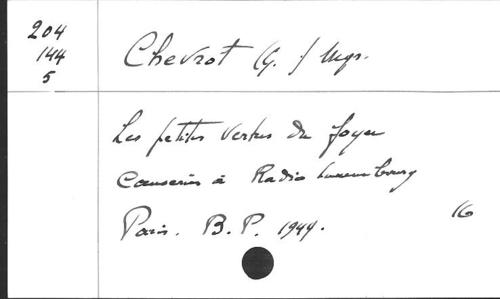 204
144
5
Chevrot (G.) Mgr.
Les petites vertus du foyer
Causeries à Radio Luxembourg
Paris. B.P. 1949.
16